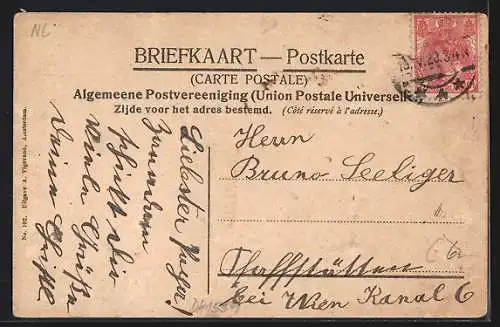 NL
BRIEFKAART — Postkarte
(CARTE POSTALE)
Algemeene Postvereeniging (Union Postale Universelle)
Zijde voor het adres bestemd. (Côté réservé à l'adresse.)
No. 102. Uitgave A. Vigevano, Amsterdam.
Liebster Puga!
schickt Dir
Viele Grüße
Deine
Herrn
Bruno Seeliger
Pfaffstätten
bei Wien Kanal 6